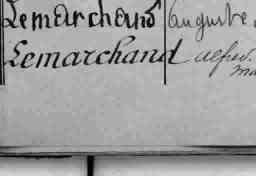 Lemarchand auguste
Lemarchand alfred.
ma